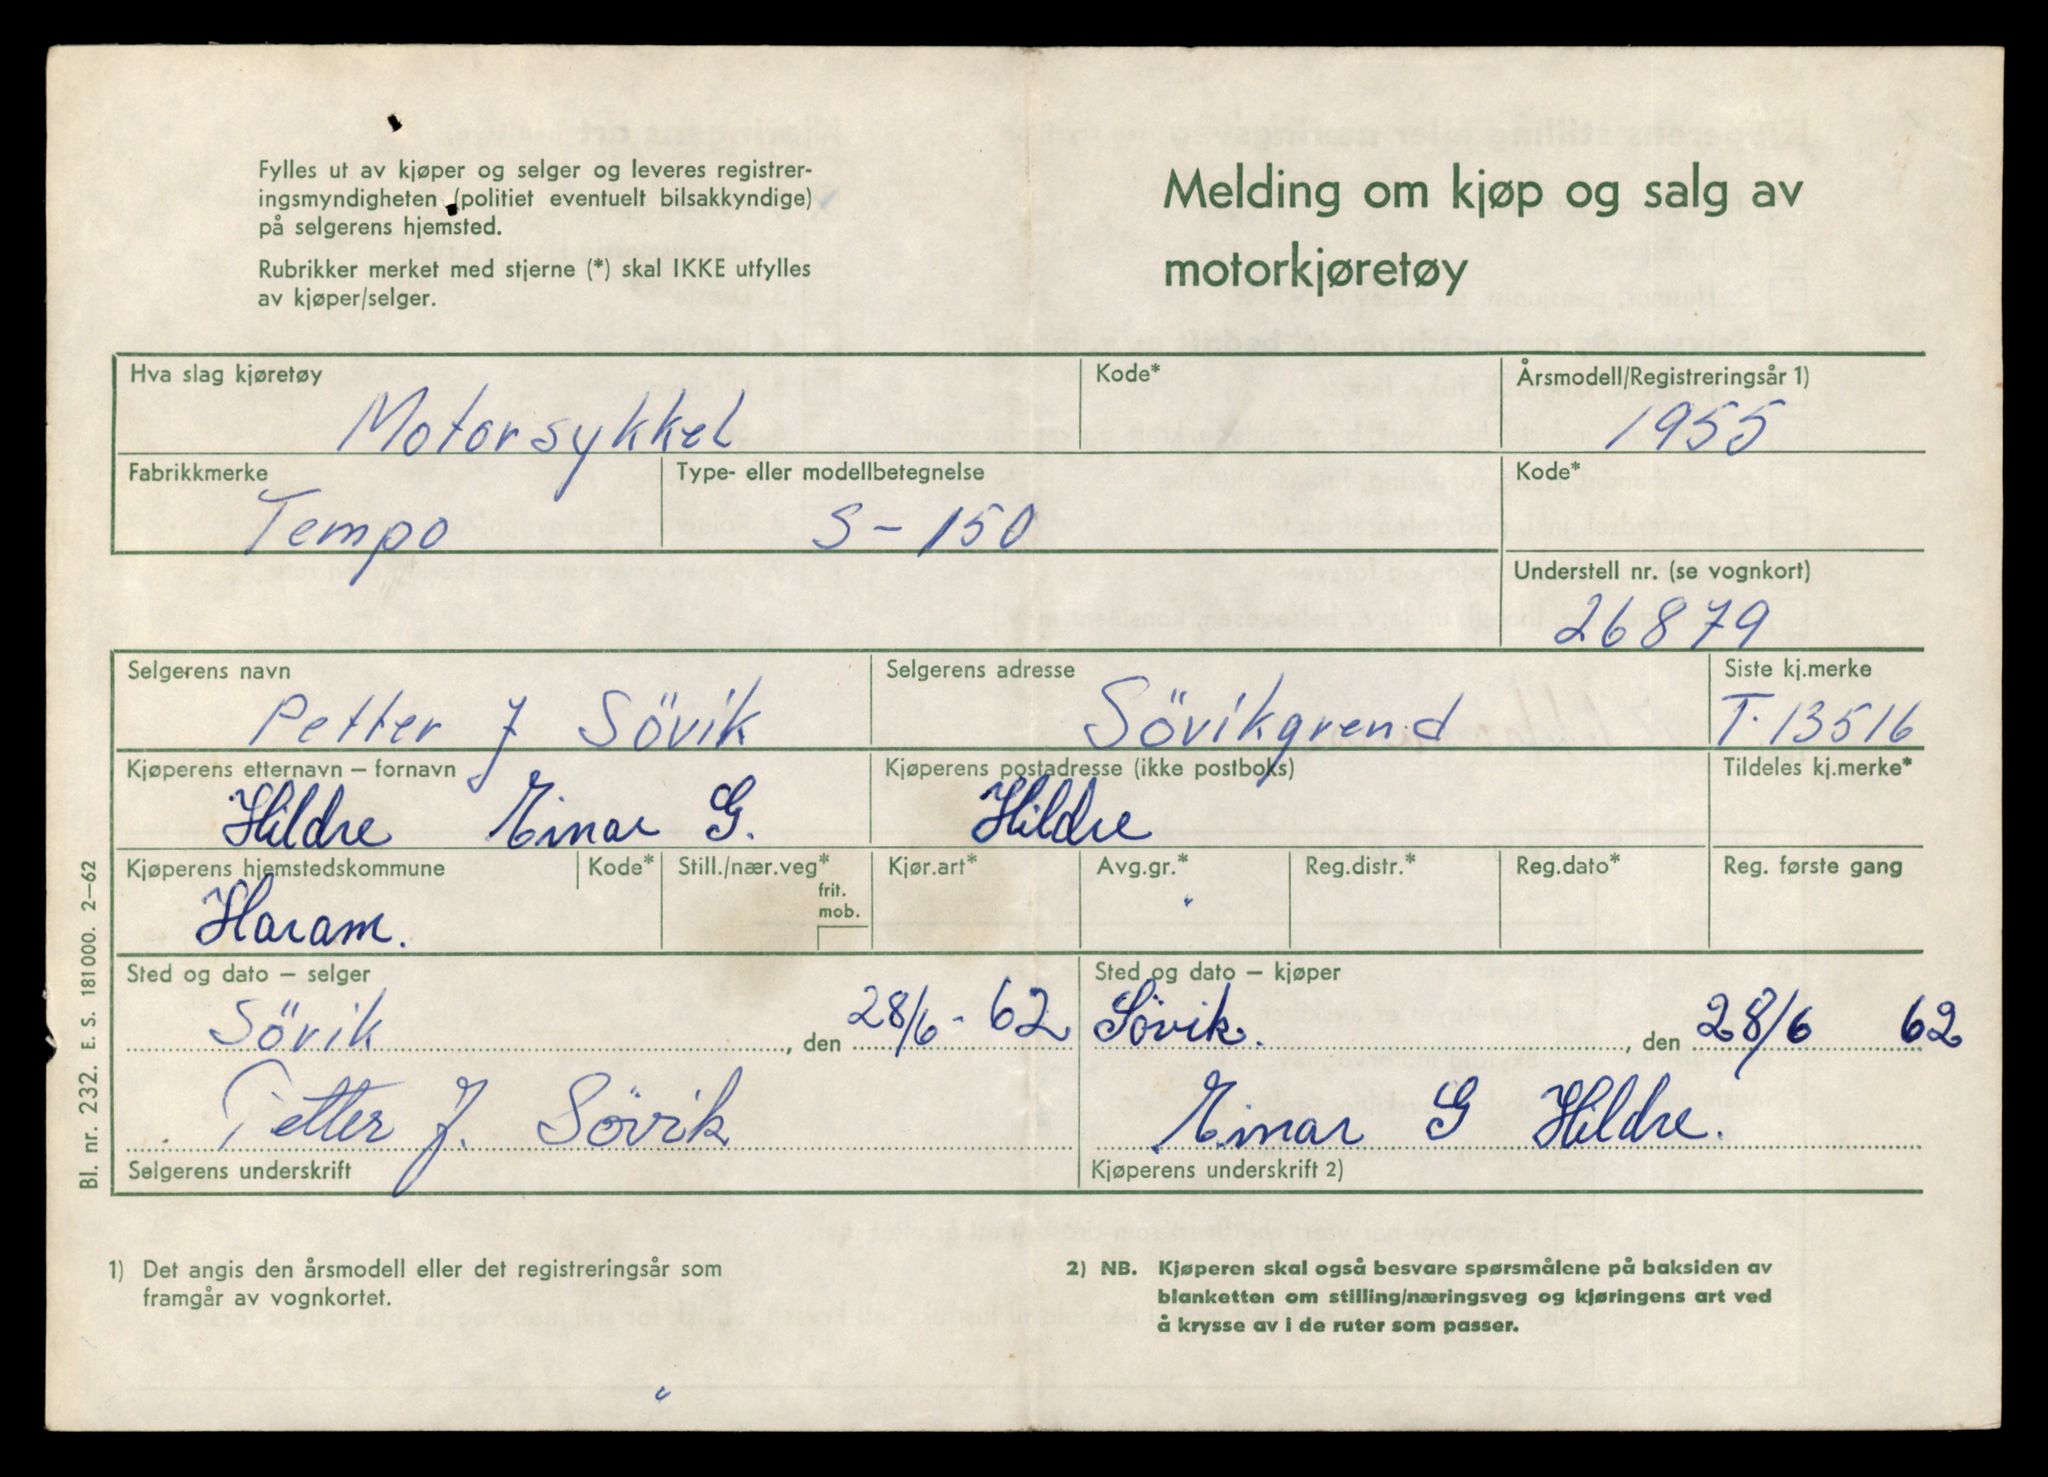 Fylles ut av kjøper og selger og leveres registrer-
ingsmyndigheten (politiet eventuelt bilsakkyndige)
på selgerens hjemsted.
Rubrikker merket med stjerne (*) skal IKKE utfylles
av kjøper/selger.
Melding om kjøp og salg av
motorkjøretøy
Hva slag kjøretøy
Motorsykkel
Kode*
Årsmodell/Registreringsår 1)
1955
Fabrikkmerke
Tempo
Type- eller modellbetegnelse
S-150
Kode*
Understell nr. (se vognkort)
26879
Selgerens navn
Petter J Sövik
Selgerens adresse
Sövikgrend
Siste kj.merke
T-13516
Kjøperens etternavn – fornavn
Hildre Einar G.
Kjøperens postadresse (ikke postboks)
Hildre
Tildeles kj.merke*
Kjøperens hjemstedskommune
Haram.
Kode*
Still./nær.veg*
frit.
mob.
Kjør.art*
Avg.gr.*
Reg.distr.*
Reg.dato*
Reg. første gang
Sted og dato – selger
Sövik, den 28/6 - 62
Petter J. Sövik
Selgerens underskrift
Sted og dato – kjøper
Sövik., den 28/6 62
Einar G Hildre.
Kjøperens underskrift 2)
Bl. nr. 232. E. S. 181000. 2–62
1) Det angis den årsmodell eller det registreringsår som
framgår av vognkortet.
2) NB. Kjøperen skal også besvare spørsmålene på baksiden av
blanketten om stilling/næringsveg og kjøringens art ved
å krysse av i de ruter som passer.